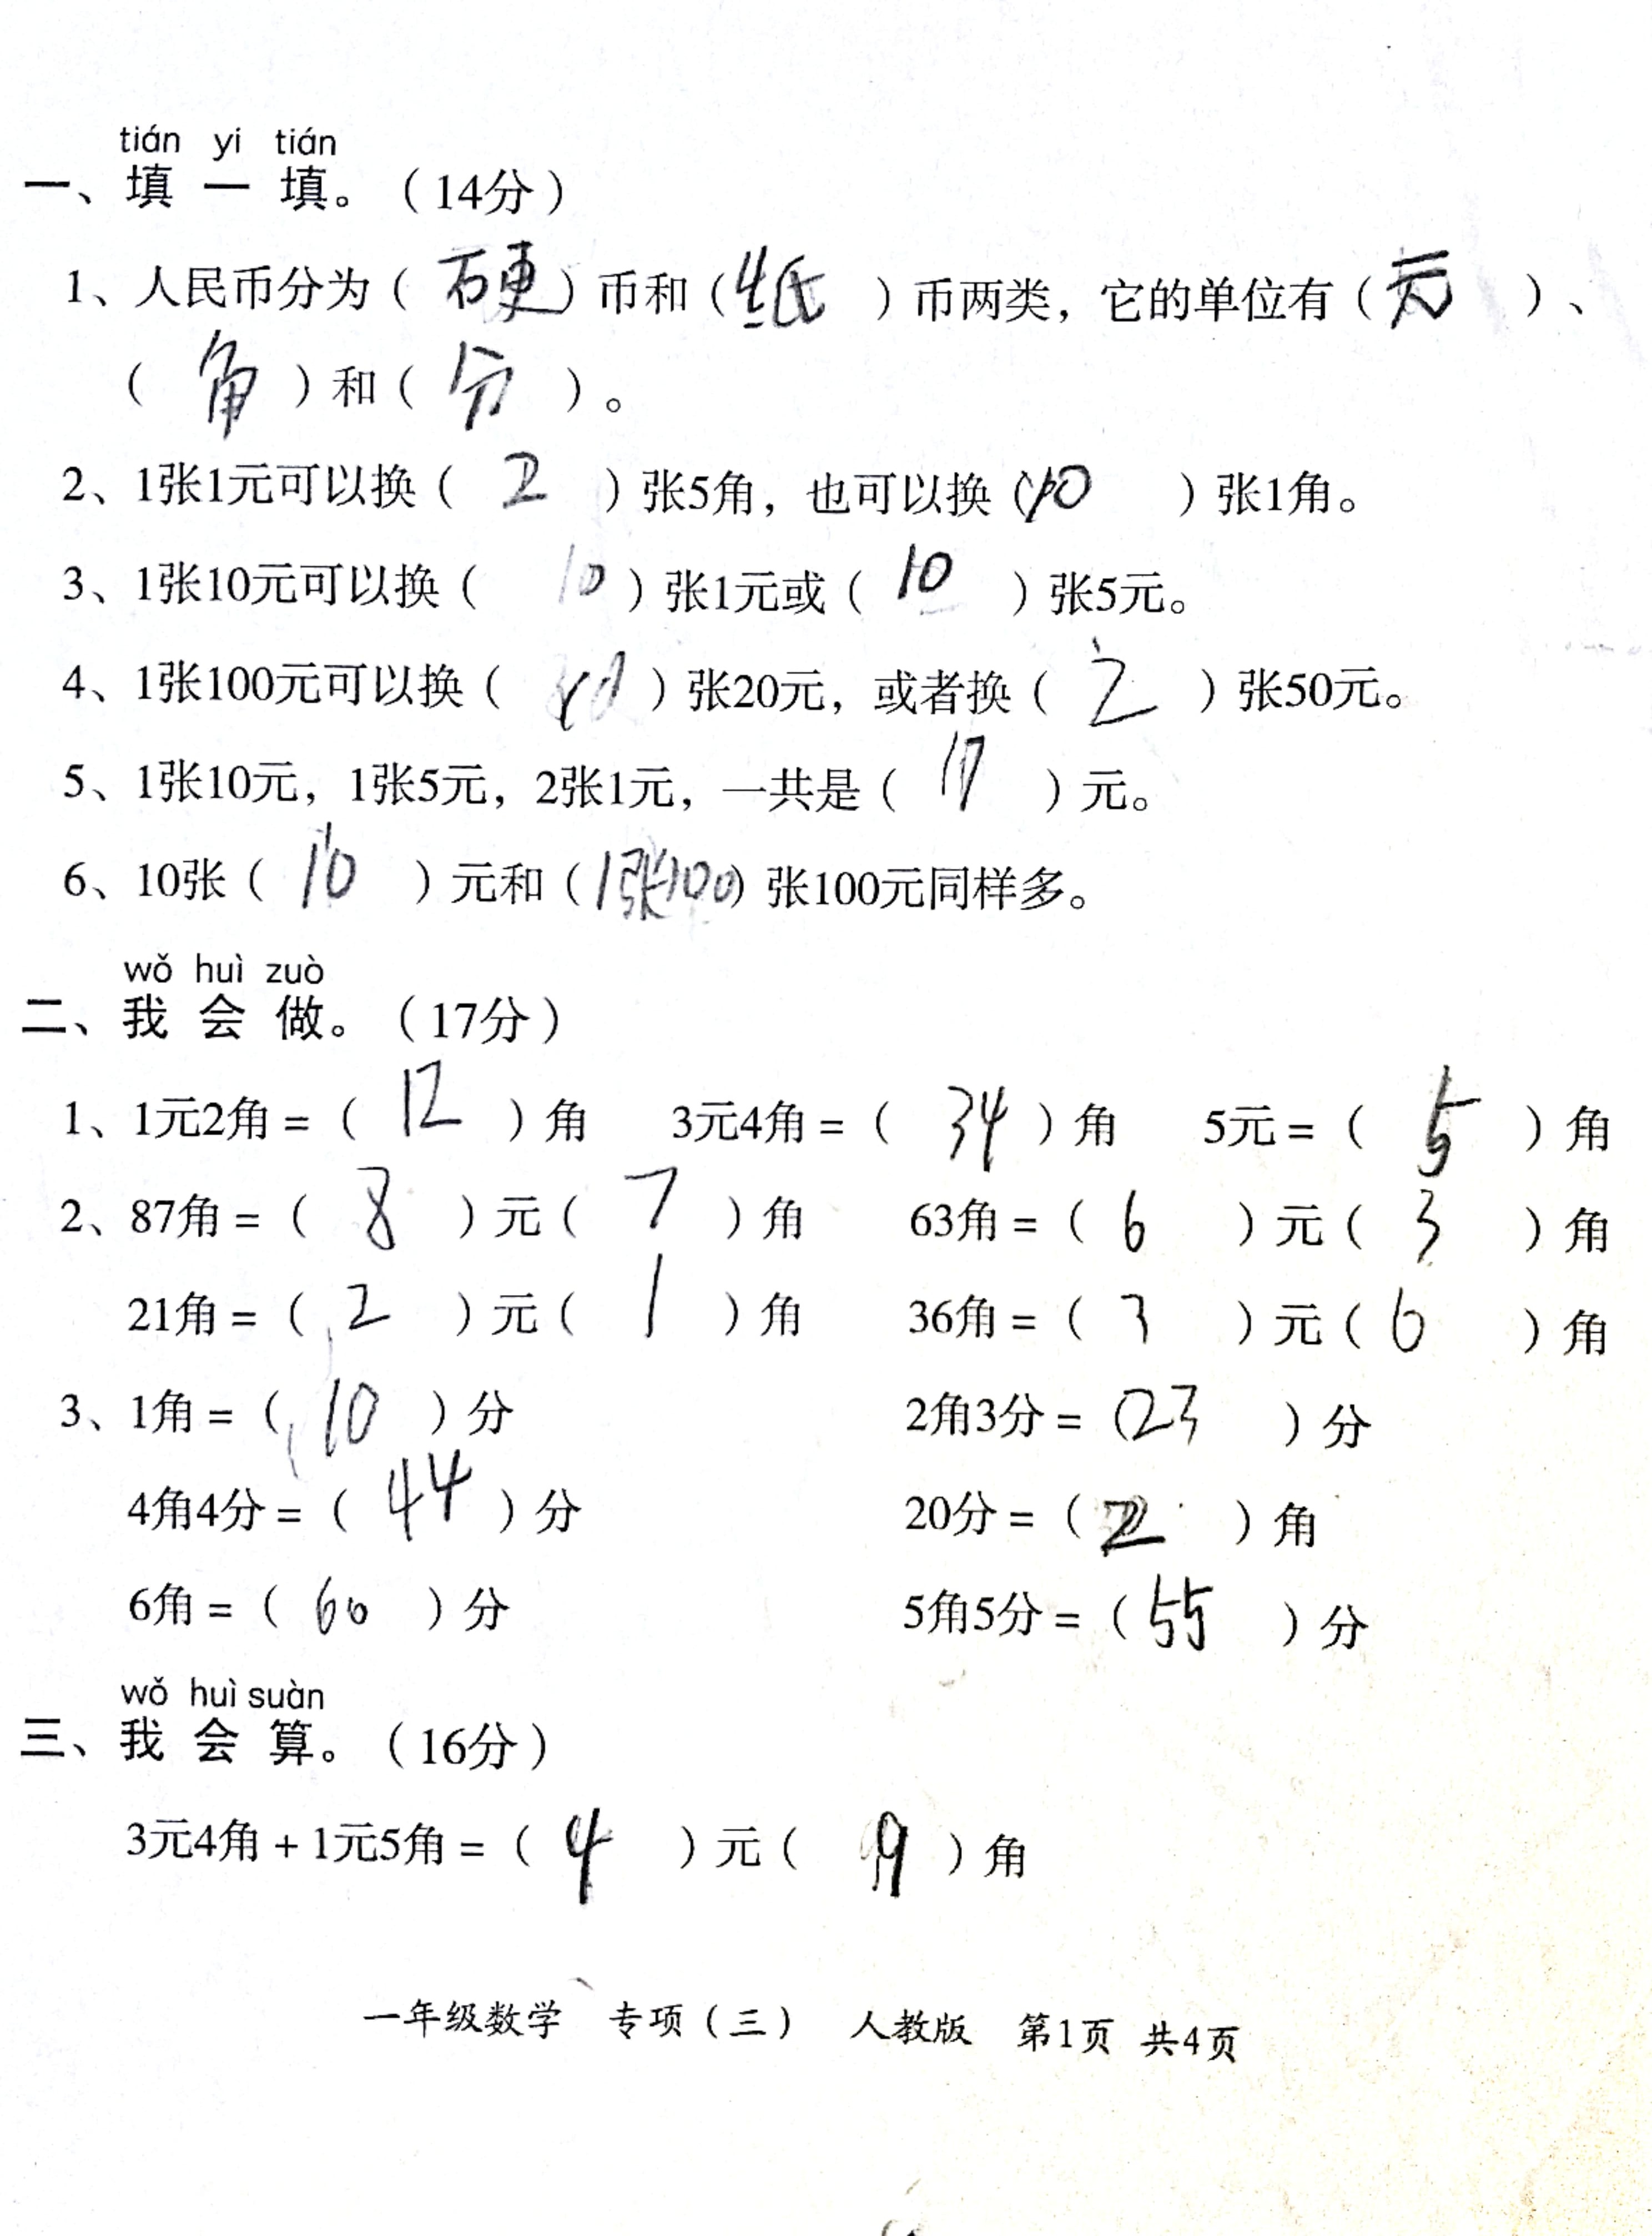 tián yi tián
一、填 一 填。（14分）
1、人民币分为（ 硬 ）币和（ 纸 ）币两类，它的单位有（ 元 ）、
（ 角 ）和（ 分 ）。
2、1张1元可以换（ 2 ）张5角，也可以换（ 10 ）张1角。
3、1张10元可以换（ 10 ）张1元或（ 10 ）张5元。
4、1张100元可以换（ ）张20元，或者换（ 2 ）张50元。
5、1张10元，1张5元，2张1元，一共是（ 17 ）元。
6、10张（ 10 ）元和（ 1张100 ）张100元同样多。
wǒ huì zuò
二、我 会 做。（17分）
1、1元2角 =（ 12 ）角 3元4角 =（ 34 ）角 5元 =（ 5 ）角
2、87角 =（ 8 ）元（ 7 ）角 63角 =（ 6 ）元（ 3 ）角
21角 =（ 2 ）元（ 1 ）角 36角 =（ 3 ）元（ 6 ）角
3、1角 =（ 10 ）分 2角3分 =（ 23 ）分
4角4分 =（ 44 ）分 20分 =（ 2 ）角
6角 =（ 60 ）分 5角5分 =（ 55 ）分
wǒ huì suàn
三、我 会 算。（16分）
3元4角 + 1元5角 =（ 4 ）元（ 9 ）角
一年级数学 专项（三） 人教版 第1页 共4页